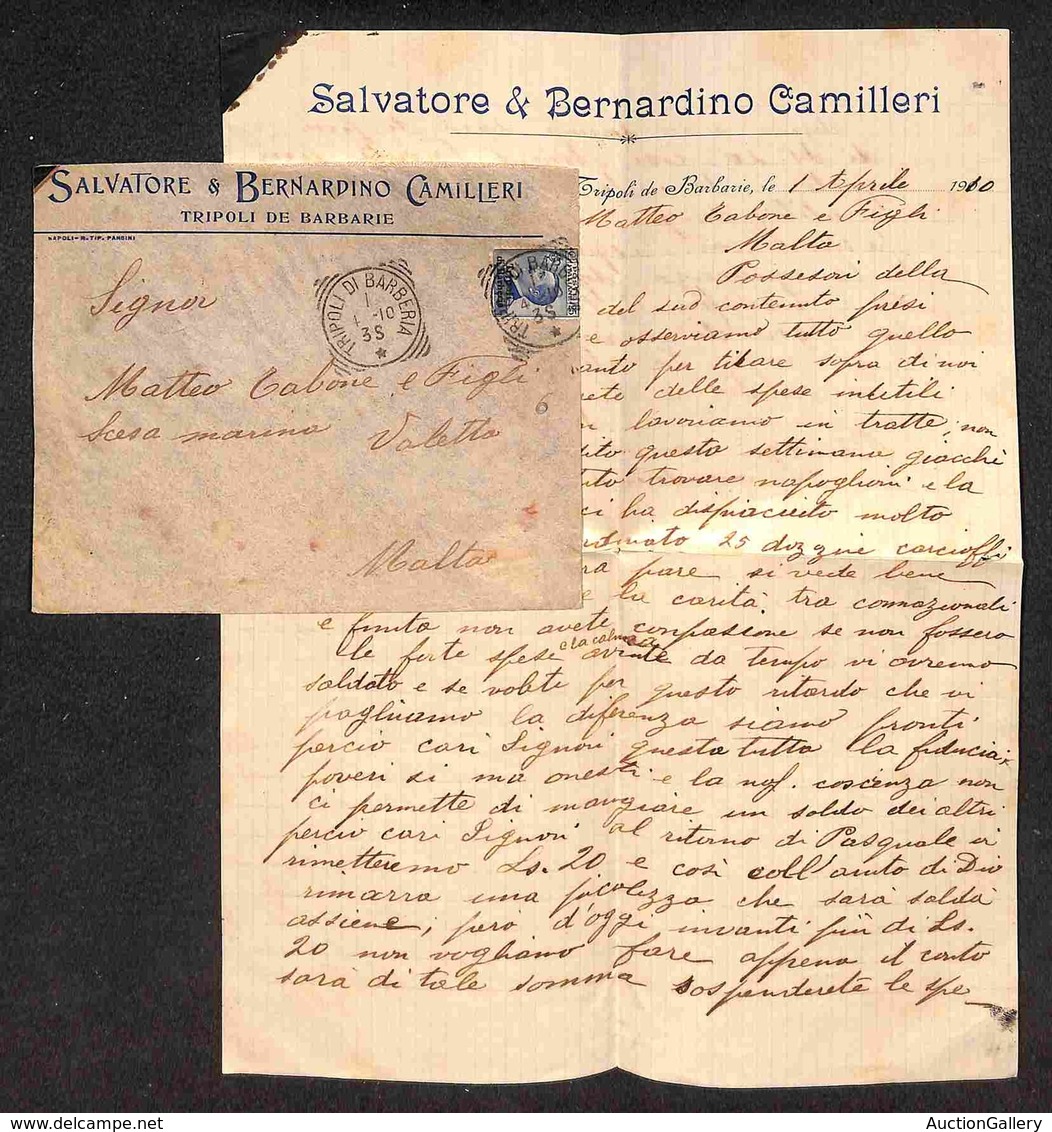 Salvatore & Bernardino Camilleri
Tripoli de Barbarie, le 1 Aprile 1910
Matteo Tabone e Figli
Malta
Possesori della
del suo contenuto presi
e osserviamo tutto quello
anto per titare sopra di noi
rete delle spese inutili
lavoriamo in tratte, non
dito questa settimana giacchi
uto trovare napoglioni e la
ci ha dispiaciuto molto
rdinato 25 dozzine carcioffi
ra pare si vede bene
e la carità tra connazionali
e finita non avete compasione se non fossero
le forte spese e la calma avute da tempo vi avremo
saldato e se volete per questo ritardo che vi
paghiamo la diferenza siamo pronti
percio cari Signori questa tutta la fiducia
poveri si ma onesti e la nos. coscenza non
ci permette di mangiare un soldo dei altri
percio cari Signori al ritorno di Pasquale vi
rimetteremo Ls. 20 e così coll'aiuto di Dio
rimarra una picolezza che sarà saldà
assieme, però d'oggi invanti più di Ls.
20 non vogliamo fare appena il conto
sara di tale somma sospenderete le spe
SALVATORE & BERNARDINO CAMILLERI
TRIPOLI DE BARBARIE
NAPOLI-R. TIP. PANSINI
TRIPOLI DI BARBERIA
1 -10
3S
TRIPOLI DI BARBERIA
3S
Signor
Matteo Tabone e Figli
6
Scesa marina Valetta
Malta
AuctionGallery